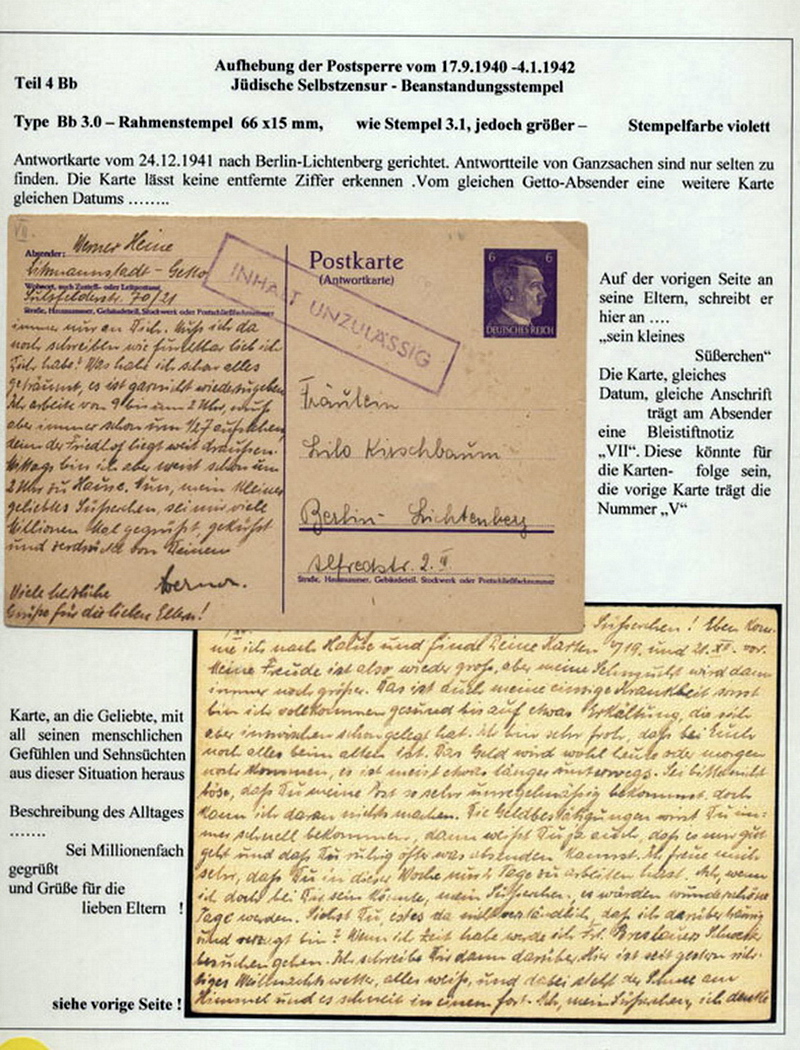 Aufhebung der Postsperre vom 17.9.1940 -4.1.1942
Teil 4 Bb
Jüdische Selbstzensur - Beanstandungsstempel
Type Bb 3.0 – Rahmenstempel 66 x15 mm, wie Stempel 3.1, jedoch größer – Stempelfarbe violett
Antwortkarte vom 24.12.1941 nach Berlin-Lichtenberg gerichtet. Antwortteile von Ganzsachen sind nur selten zu
finden. Die Karte lässt keine entfernte Ziffer erkennen .Vom gleichen Getto-Absender eine weitere Karte
gleichen Datums ........
VII.
Absender: Werner Heine
Litzmannstadt - Getto
Wohnort, auch Zustell- oder Leitpostamt
Sulzfelderstr. 70/21
Straße, Hausnummer, Gebäudeteil, Stockwerk oder Postschließfachnummer
immer nur an Dich. Muss ich da
noch schreiben wie furchtbar lieb ich
Dich habe! Was habe ich schon alles
geträumt, es ist garnicht wiederzugeben
Ich arbeite von 9 bis um 2 Uhr, muß
aber immer schon um 1/27 aufstehen,
denn der Friedhof liegt weit draußen.
Mittags bin ich aber meist schon um
2 Uhr zu Hause. Nun, mein kleines
geliebtes Süßerchen, sei mir viele
Millionen Mal gegrüßt, geküßt
und zerdrückt von Deinem
Werner.
Viele herzliche
Grüße für die lieben Eltern!
INHALT UNZULÄSSIG
Postkarte
(Antwortkarte)
6 6
DEUTSCHES REICH
Fräulein
Lilo Kirschbaum
Berlin - Lichtenberg
Alfredstr. 2. II.
Straße, Hausnummer, Gebäudeteil, Stockwerk oder Postschließfachnummer
Auf der vorigen Seite an
seine Eltern, schreibt er
hier an ....
„sein kleines
Süßerchen“
Die Karte, gleiches
Datum, gleiche Anschrift
trägt am Absender
eine Bleistiftnotiz
„VII“. Diese könnte für
die Karten- folge sein,
die vorige Karte trägt die
Nummer „V“
Süßerchen! Eben kom-
me ich nach Hause und finde Deine Karten 19. und 21. XII. vor.
Meine Freude ist also wieder groß, aber meine Sehnsucht wird dann
immer noch größer. Das ist auch meine einzige Krankheit sonst
bin ich vollkommen gesund bis auf etwas Erkältung, die sich
aber inzwischen schon gelegt hat. Ich bin sehr froh, dass bei Euch
noch alles beim alten ist. Das Geld wird wohl heute oder morgen
noch kommen, es ist meist etwas länger unterwegs. Sei bitte nicht
böse, daß Du meine Post so sehr unregelmäßig bekommst, doch
kann ich daran nichts machen. Die Geldbestätigungen wirst Du im-
mer schnell bekommen, dann weißt Du ja auch, daß es mir gut
geht und daß Du ruhig öfter was absenden kannst. Ich freue mich
sehr, daß Du in dieser Woche nur Tage zu arbeiten hast. Ach, wenn
ich doch bei Dir sein könnte, mein Süßerchen, es würden wunderschöne
Tage werden. Siehst Du, ist es da nicht verständlich, daß ich darüber traurig
und verzagt bin? Wenn ich Zeit habe werde ich Frl. Breslauers
besuchen gehen. Ich schreibe Dir dann darüber. Hier ist seit gestern rich-
tiges Weihnachtswetter, alles weiß, und dabei steht der Schnee am
Himmel und es schneit in einem fort. Ach, mein Süßerchen, ich denke
Karte, an die Geliebte, mit
all seinen menschlichen
Gefühlen und Sehnsüchten
aus dieser Situation heraus
Beschreibung des Alltages
.......
Sei Millionenfach
gegrüßt
und Grüße für die
lieben Eltern !
siehe vorige Seite !